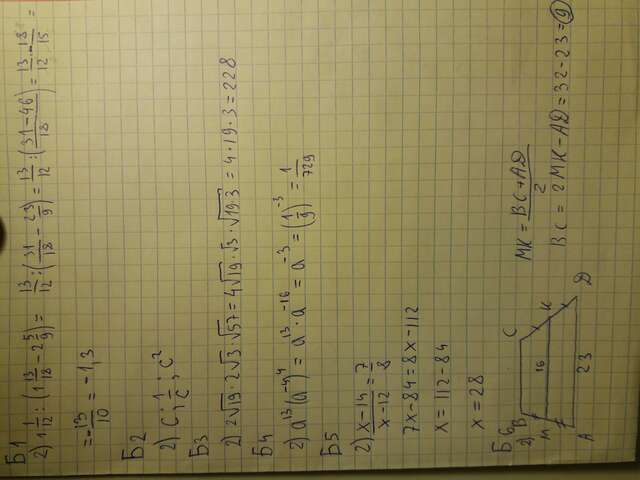 Б1
2) 1 1/12 : (1 13/18 - 2 5/9) = 13/12 : (31/18 - 23/9) = 13/12 : (31-46/18) = 13/12 · -18/15 =
= -13/10 = -1,3
Б2
2) c; 1/c; c²
Б3
2) 2√19 · 2√3 · √57 = 4√19 · √3 · √19·3 = 4·19·3 = 228
Б4
2) a¹³(a⁻⁴)⁴ = a¹³ · a⁻¹⁶ = a⁻³ = (1/9)⁻³ = 1/729
Б5
2) x-14/x-12 = 7/8
7x-84=8x-112
x = 112-84
x = 28
Б6
2)
B C
M 16 K
A 23 D
MK = BC+AD/2
BC = 2MK-AD=32-23=9